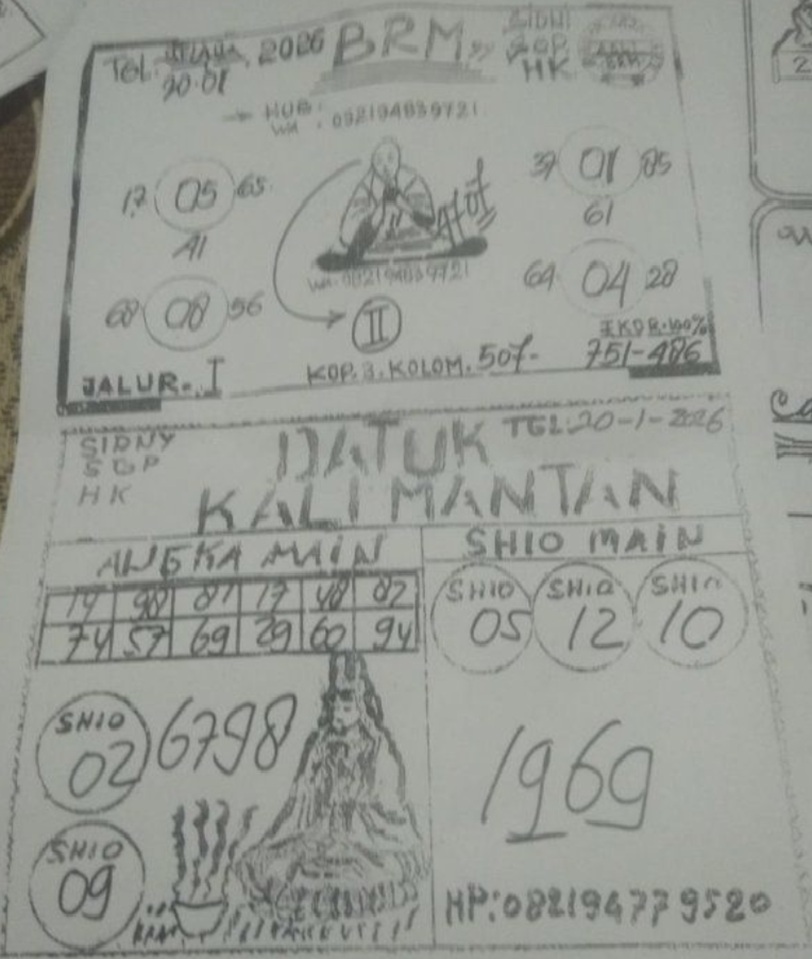 TGL: 2026 BRM
SIDNI
SGP
HK
20.01
HUB:
WA: 082194839721
17 05 65
41
37 01 85
61
WA: 082194839721
68 08 56
II
64 04 28
EKOR.100%
JALUR. I
KOP. 3. KOLOM. 507-
751-486
SIDNY
SGP
HK
DATUK
TGL: 20-1-2026
KALIMANTAN
ANGKA MAIN
SHIO MAIN
19 98 87 17 48 82
74 57 69 29 60 94
SHIO 05
SHIO 12
SHIO 10
SHIO 02
6798
1969
SHIO 09
HP: 082194779520